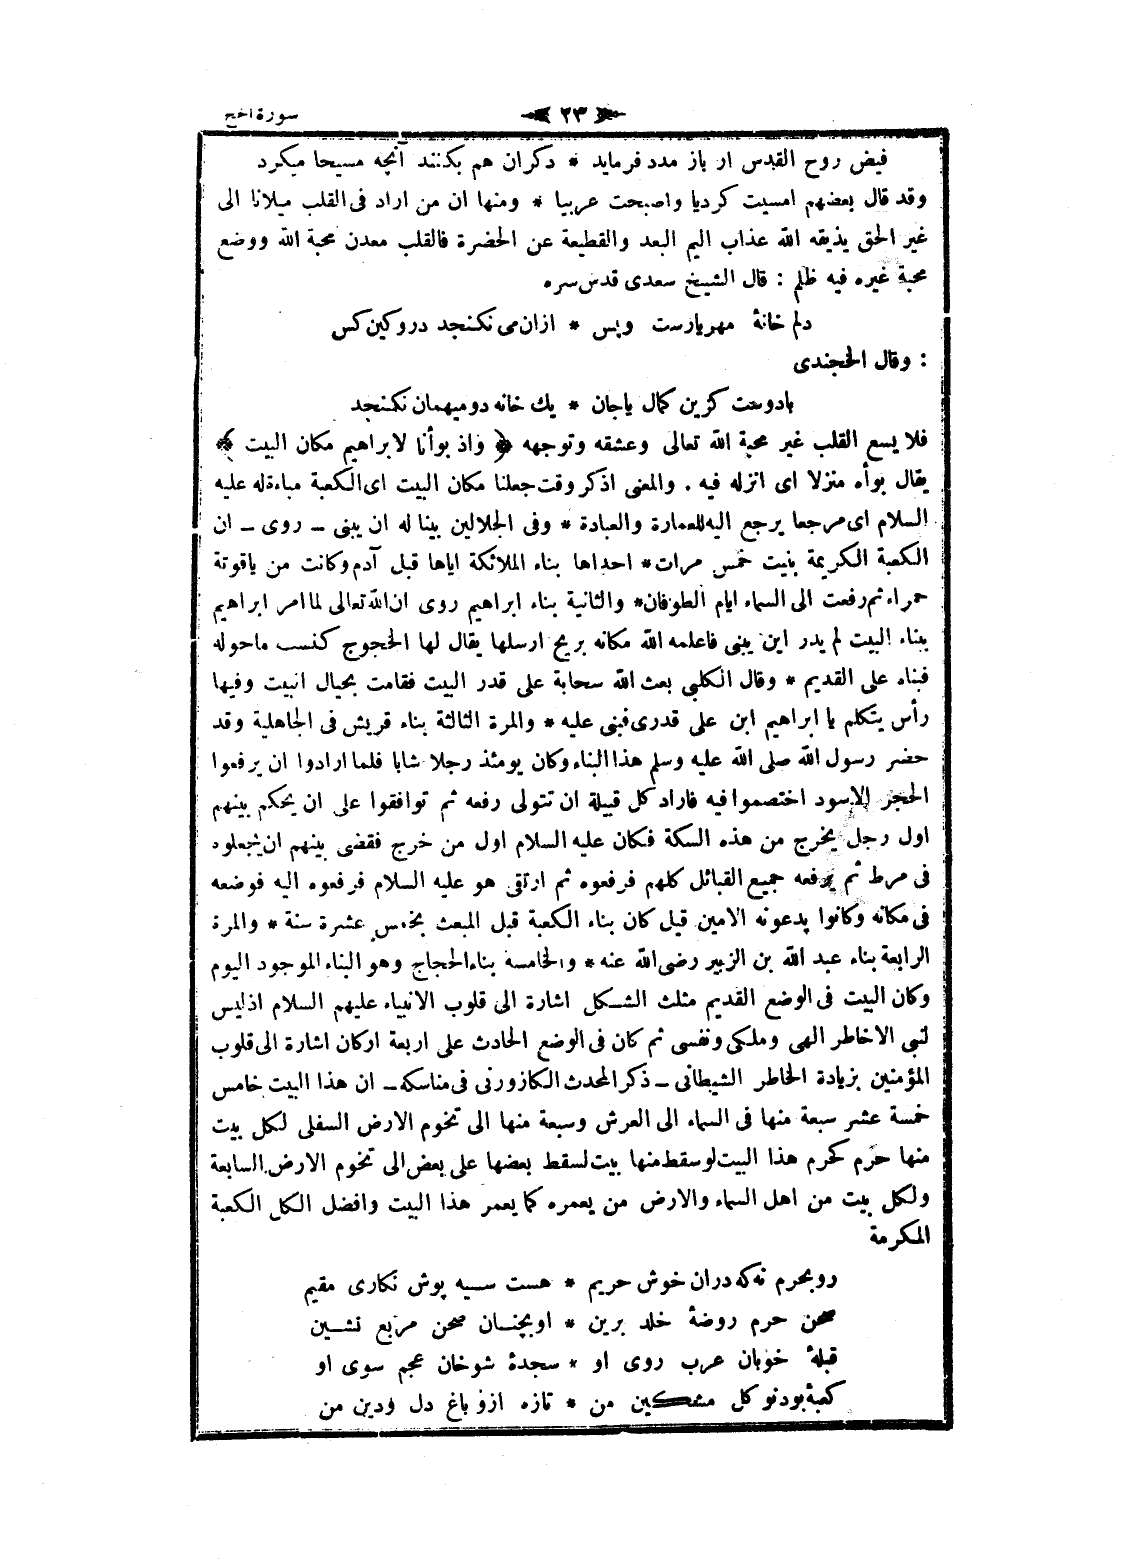 سورة الحج
٢٣
فيض روح القدس ار باز مدد فرمايد * دكران هم بكنند آنچه مسيحا ميكرد
وقد قال بعضهم امسيت كرديا واصبحت عربيا * ومنها ان من اراد فى القلب ميلانا الى
غير الحق يذيقه الله عذاب اليم البعد والقطيعة عن الحضرة فالقلب معدن محبة الله ووضع
محبة غيره فيه ظلم : قال الشيخ سعدى قدس سره
دلم خانۀ مهر يارست وبس * ازان مى نكنجد دروكين كس
: وقال الخجندى
بادوست كزين كمال ياجان * يك خانه دوميهمان نكنجد
فلا يسع القلب غير محبة الله تعالى وعشقه وتوجهه ﴿ واذ بوأنا لابراهيم مكان البيت ﴾
يقال بوأه منزلا اى انزله فيه . والمعنى اذكر وقت جعلنا مكان البيت اى الكعبة مباءة له عليه
السلام اى مرجعا يرجع اليه للعمارة والعبادة * وفى الجلالين بينا له ان يبنى ـ روى ـ ان
الكعبة الكريمة بنيت خمس مرات * احداها بناء الملائكة اياها قبل آدم وكانت من ياقوتة
حمراء ثم رفعت الى السماء ايام الطوفان * والثانية بناء ابراهيم روى ان الله تعالى لما امر ابراهيم
ببناء البيت لم يدر اين يبنى فاعلمه الله مكانه بريح ارسلها يقال لها الخجوج كنست ماحوله
فبناه على القديم * وقال الكلبى بعث الله سحابة على قدر البيت فقامت بحيال البيت وفيها
رأس يتكلم يا ابراهيم ابن على قدرى فبنى عليه * والمرة الثالثة بناء قريش فى الجاهلية وقد
حضر رسول الله صلى الله عليه وسلم هذا البناء وكان يومئذ رجلا شابا فلما ارادوا ان يرفعوا
الحجر الاسود اختصموا فيه فاراد كل قبيلة ان تتولى رفعه ثم توافقوا على ان يحكم بينهم
اول رجل يخرج من هذه السكة فكان عليه السلام اول من خرج فقضى بينهم ان يجعلوه
فى مرط ثم يرفعه جميع القبائل كلهم فرفعوه ثم ارتقى هو عليه السلام فرفعوه اليه فوضعه
فى مكانه وكانوا يدعونه الامين قيل كان بناء الكعبة قبل المبعث بخمس عشرة سنة * والمرة
الرابعة بناء عبد الله بن الزبير رضى الله عنه * والخامسة بناء الحجاج وهو البناء الموجود اليوم
وكان البيت فى الوضع القديم مثلث الشكل اشارة الى قلوب الانبياء عليهم السلام اذ ليس
لنبى الا خاطر الهى وملكى ونفسى ثم كان فى الوضع الحادث على اربعة اركان اشارة الى قلوب
المؤمنين بزيادة الخاطر الشيطانى ـ ذكر المحدث الكازورنى فى مناسكه ـ ان هذا البيت خامس
خمسة عشر سبعة منها فى السماء الى العرش وسبعة منها الى تخوم الارض السفلى لكل بيت
منها حرم كحرم هذا البيت لو سقط منها بيت لسقط بعضها على بعض الى تخوم الارض السابعة
ولكل بيت من اهل السماء والارض من يعمره كما يعمر هذا البيت وافضل الكل الكعبة
المكرمة
رو بحرم نه كه دران خوش حريم * هست سيه پوش نكارى مقيم
صحن حرم روضۀ خلد برين * او بچنان صحن مربع نشين
قبلۀ خوبان عرب روى او * سجدۀ شوخان عجم سوى او
كعبۀ بود نو كل مشكين من * تازه ازو باغ دل ودين من